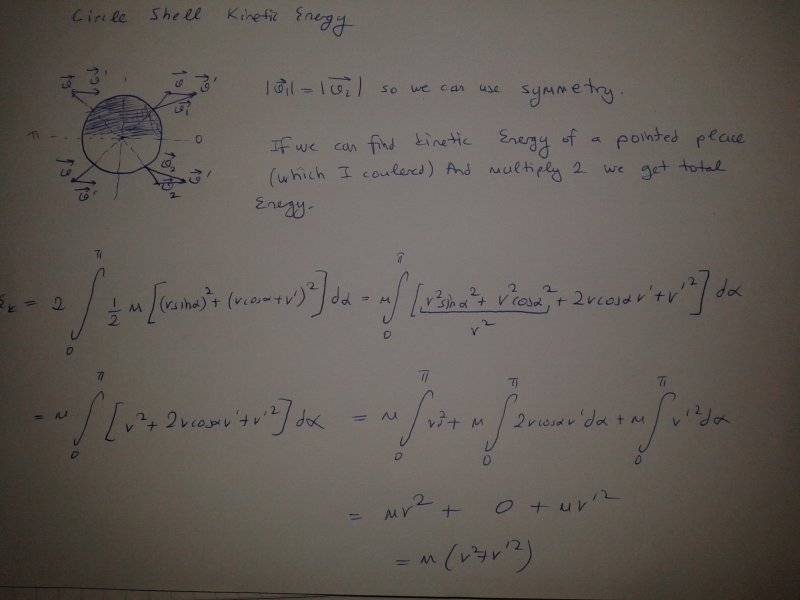 Circle Shell Kinetic Energy
|v⃗₁| = |v⃗₂| so we can use symmetry.
If we can find kinetic Energy of a pointed place
(which I coulered) And multiply 2 we get total
Energy.
π 0
v⃗ v⃗' v⃗ v⃗' v⃗₁
v⃗ v⃗' v⃗₂ v⃗'
= 2 ∫₀^π ½ M [(vsinα)² + (vcosα+v')²] dα = M ∫₀^π [v²sinα² + v²cosα² + 2vcosαv' + v'²] dα
v²
= M ∫₀^π [v² + 2vcosαv' + v'²] dα = M ∫₀^π v² + M ∫₀^π 2vcosαv'dα + M ∫₀^π v'²dα
= Mv² + 0 + Mv'²
= M (v²+v'²)